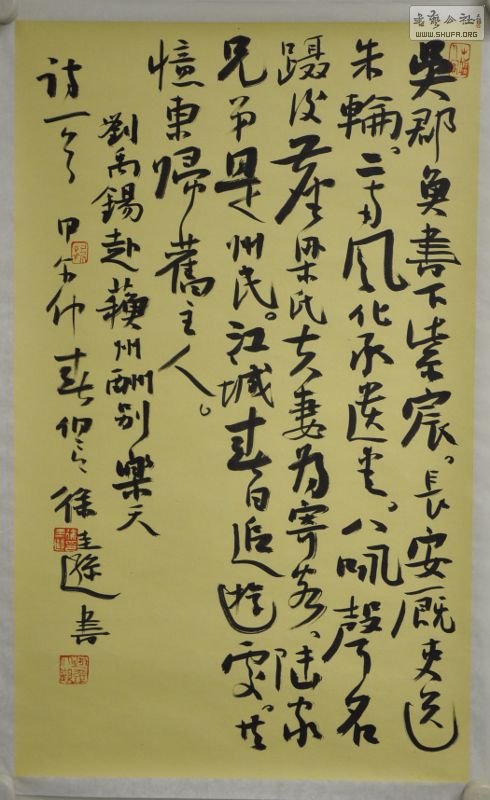 吳郡魚書下紫宸。長安厩吏送
朱輪。二南風化承遺愛。八詠聲名
躡後塵 梁氏夫妻為寄客、陸家
兄弟是州民。江城春日追遊處。共
憶東歸舊主人。
劉禹錫赴蘇州酬別樂天
詩一首 甲午仲春 徐圭遜書
书艺公社
WWW.SHUFA.ORG